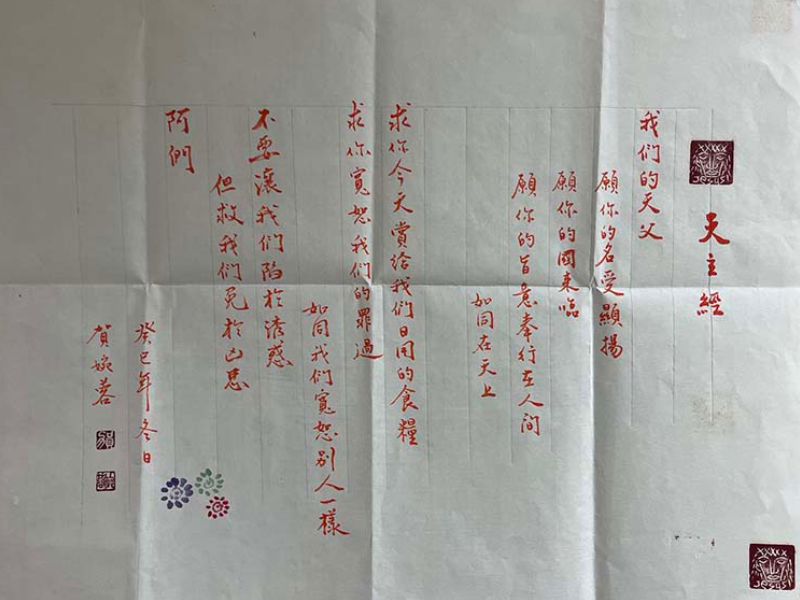 天主經
我们的天父
願你的名受顯揚
願你的國来臨
願你的旨意奉行在人间
如同在天上
求你今天賞给我们日用的食糧
求你寬恕我们的罪過
如同我们寬恕别人一樣
不要讓我们陷於诱惑
但救我们免於凶恶
阿们
癸巳年冬日
賀婉蓉
JESUS
JESUS